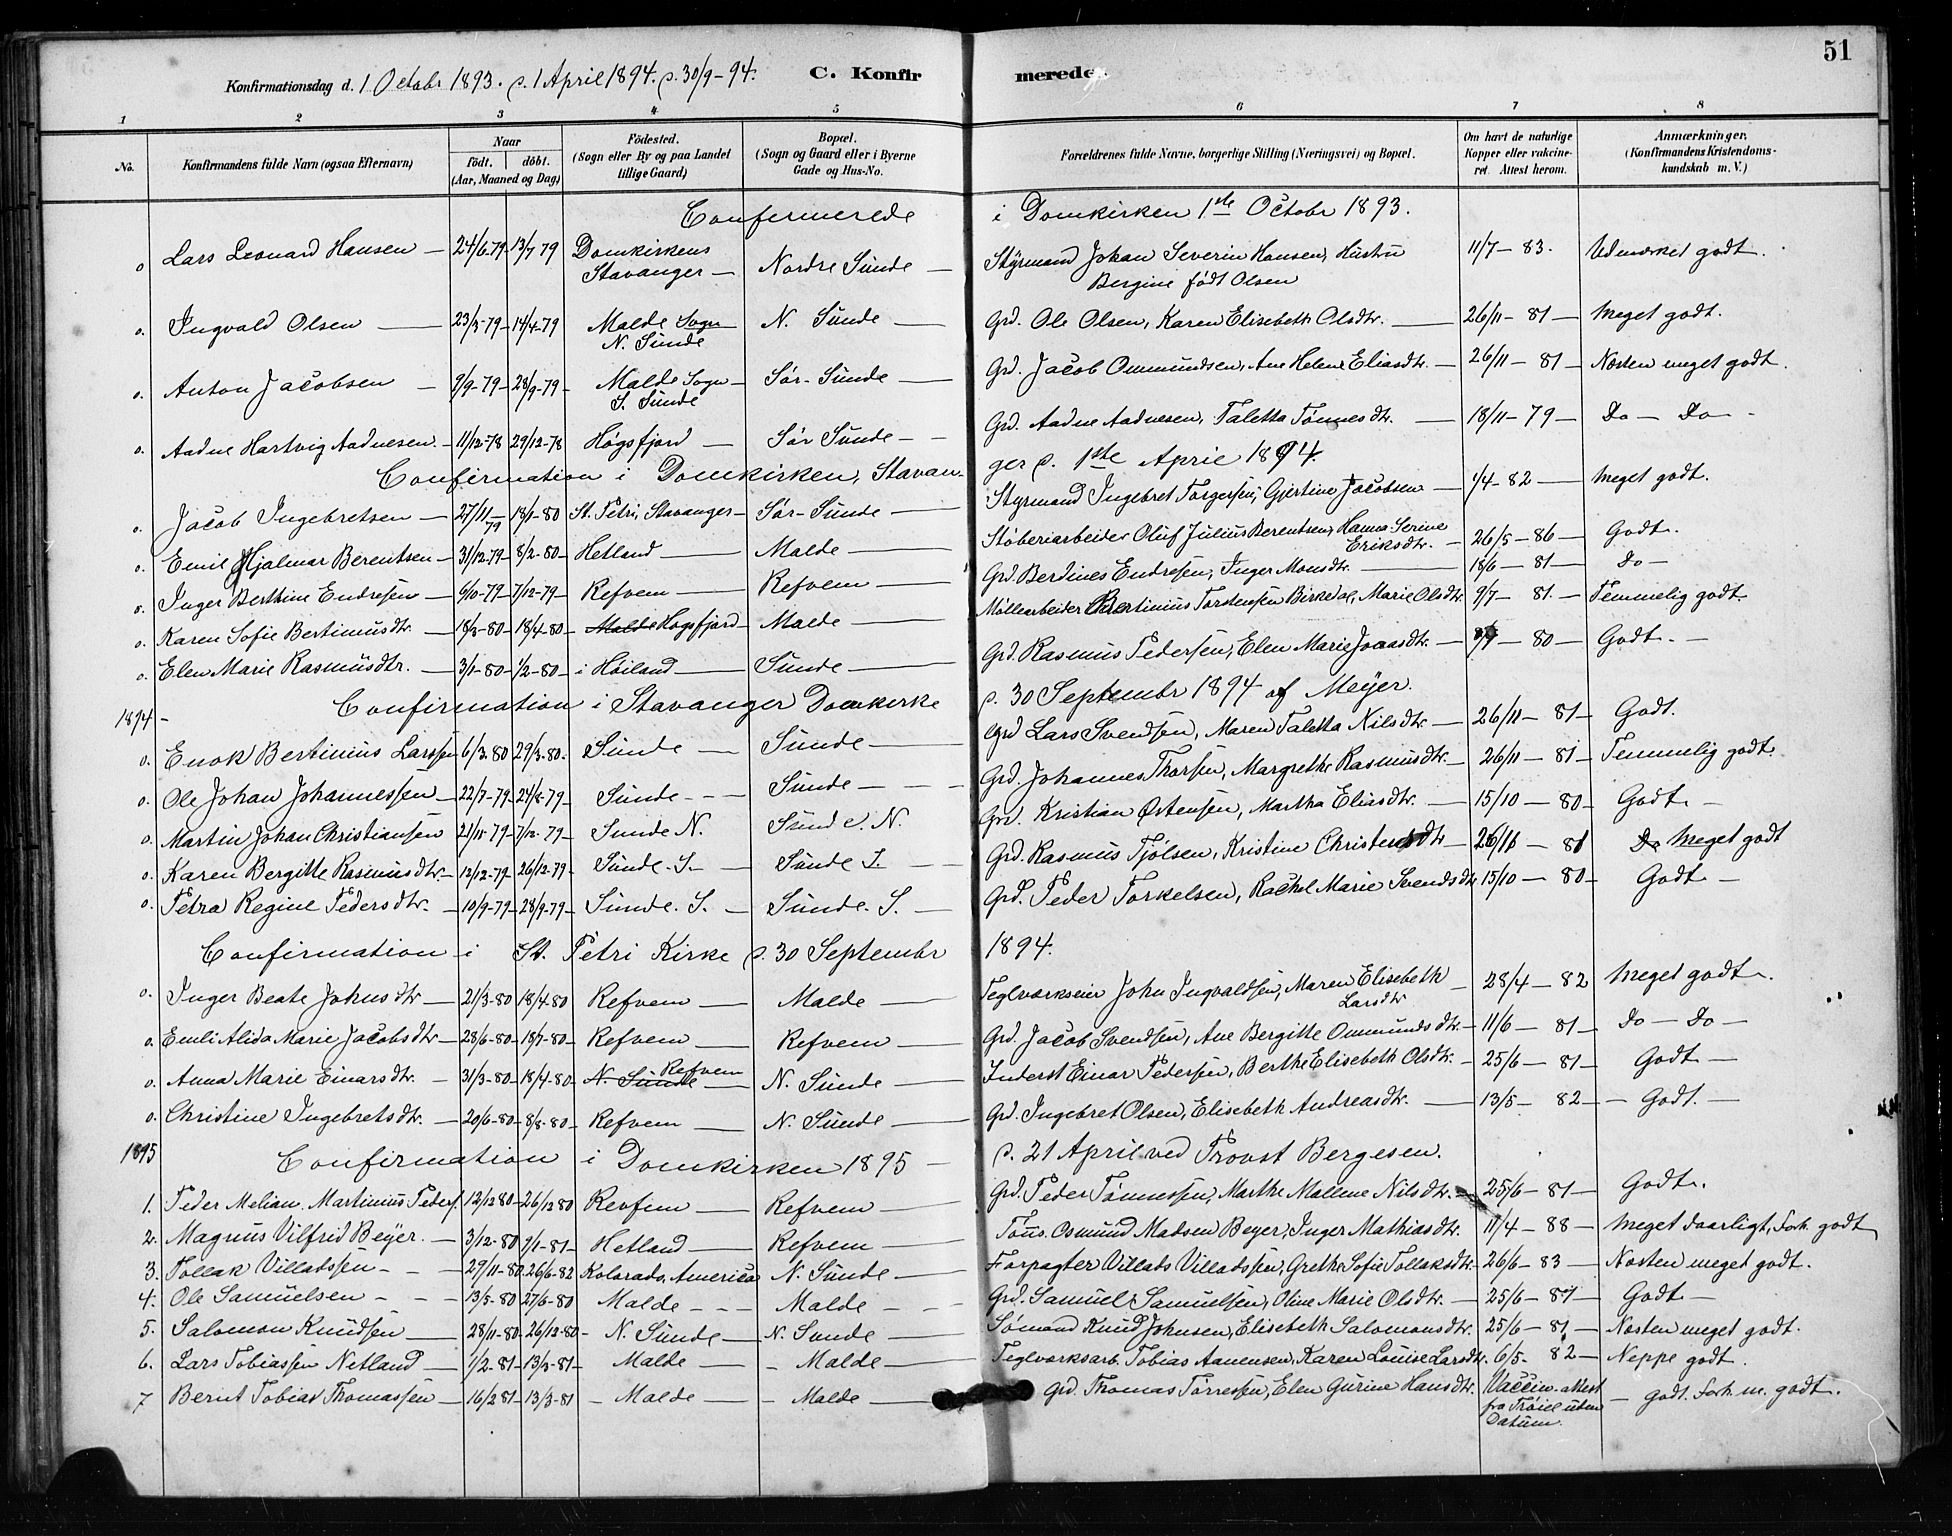 51
Konfirmationsdag d. 1 Octobr 1893. d. 1 April 1894. d. 30/9-94. C. Konfirmerede.
1 2 3 4 5 6 7 8
No. Konfirmandens fulde Navn (ogsaa Efternavn) Naar födt. döbt. (Aar, Maaned og Dag) Födested. (Sogn eller By og paa Landet tillige Gaard) Bopæl. (Sogn og Gaard eller i Byerne Gade og Hus-No. Forældrenes fulde Navne, borgerlige Stilling (Næringsvei) og Bopæl. Om havt de naturlige Kopper eller vakcineret. Attest herom. Anmærkninger. (Konfirmandens Kristendomskundskab m. V.)
Confirmerede i Domkirken 1ste Octobr 1893.
o Lars Leonard Hansen — 24/6-79 13/7 79 Domkirkens Stavanger — Nordre Sunde — Styrmand Johan Severin Hansen, Hustru Bergine født Olsen 11/7-83. Udmærket godt.
o. Ingvald Olsen — 23/3-79 14/4-79 Malde Sogn N. Sunde N. Sunde — Grd. Ole Olsen, Karen Elisebeth Olsdtr. — 26/11-81 — Meget godt.
o. Anton Jacobsen — 9/9-79 28/9-79 Malde Sogn S. Sunde Sør-Sunde — Grd. Jacob Ommundsen, Ane Helene Eliasdtr. — 26/11-81 — Næsten meget godt.
o. Aadne Hartvig Aadnesen. 11/12-78 29/12-78 Høgsfjord — Sør Sunde — Grd. Aadne Aadnesen, Taletta Tønnesdtr. — 18/11-79 — Do — Do —
Confirmation i Domkirken, Stavanger d. 1ste April 1894.
o. Jacob Ingebretsen — 27/11-79 18/1-80 St. Petri, Stavanger — Sør-Sunde — Styrmand Ingebret Torgersen, Gjertine Jacobsen — 1/4-82 — Meget godt.
o. Emil Hjalmar Berentsen — 31/12-79 8/2-80 Hetland — Malde — Støberiarbeider Oluf Julius Berentsen, Hanna Serine Eriksdtr. — 26/5-86 — Godt.
o. Inger Berthine Endresen — 6/10-79 7/12-79 Refvem — Refvem — Grd. Berdines Endresen, Inger Monsdtr. — 18/6-81 — Do —
o. Karen Sofie Bertinusdtr. — 18/3-80 18/4-80 Malde Høgsfjord — Malde — Møllearbeider Bertinius Torstensen Birkedal, Marie Olsdtr 9/7-81. — Temmelig godt.
o. Elen Marie Rasmusdtr. — 3/1-80 1/2-80 i Høiland — Sunde — Grd. Rasmus Pedersen, Elen Marie Jonasdtr. — -80 — Godt. —
1894 — Confirmation i Stavanger Domkirke d. 30 Septembr 1894 af Meyer.
o. Enok Bertinius Larssen 6/3-80 29/3-80. Sunde — Sunde — Grd Lars Svendsen, Maren Taletta Nilsdtr. — 26/11-81 — Godt.
o. Ole Johan Johannessen — 22/7-79 24/8-79 — Sunde — Sunde — Grd. Johannes Thorsen, Margrethe Rasmusdtr. — 26/11-81 — Temmelig godt.
o. Martin Johan Christiansen 21/11-79 7/12-79 — Sunde N. Sunde. N. Grd. Kristian Østensen, Martha Eliasdtr. — 15/10-80 — Godt —
o. Karen Bergitte Rasmusdtr. — 12/12-79 26/12-79 Sunde. S. — Sunde S. — Grd. Rasmus Tjølsen, Kristine Christensdtr — 26/11-81 Do Meget godt
o. Petra Regine Pedersdtr. — 10/9-79 28/9-79 — Sunde. S. — Sunde. S. — Grd. Peder Torkelsen, Rachel Marie Svendsdtr 15/10-80 — Godt —
Confirmation i St. Petri Kirke d. 30 Septembr 1894.
o. Inger Beate Johnsdtr — 21/3-80 18/4-80 Refvem — Malde — Teglværkseier John Ingvaldsen, Maren Elisebeth Larsdtr — 28/4-82 Meget godt.
o. Emli Alida Marie Jacobsdtr — 28/6-80 18/7-80 — Refvem — Refvem — Grd. Jacob Svendsen, Ane Bergitte Ommundsdtr. — 11/6-81 — Do — Do —
o. Anna Marie Einarsdtr. — 31/3-80 18/4-80 N. Sunde Refvem — N. Sunde — Inderst Einar Pedersen, Berthe Elisebeth Olsdtr. — 25/6-81 — Godt —
o. Christine Ingebretsdtr. — 20/6-80 8/8-80 — Refvem — N. Sunde — Grd. Ingebret Olsen, Elisebeth Andreasdtr. — 13/5-82 — Godt. —
1895 Confirmation i Domkirken 1895 — d. 21 April ved Provst Bergesen.
1. Peder Melian. Martinius Peders. 12/12 80 26/12 80 Revfem — Refvem — Grd. Peder Tønnessen, Marthe Mallene Nilsdtr. — 25/6-81 — Godt.
2. Magnus Vilfrid Beyer. — 3/12-80 9/1-81 — Hetland — Refvem — Osmund Madsen Beyer, Inger Mathiasdtr. 11/4-88 — Meget daarligt, Forh. godt
3. Tollak Villadssen — 29/11-80 26/6-82 Kolorado, America N. Sunde — Forpagter Villads Villadssen, Grethe Sofie Tollaksdtr. — 26/6-83 — Næsten meget godt.
4. Ole Samuelsen — 13/5-80 27/6-80 Malde — Malde — Grd. Samuel Samuelsen, Oline Marie Olsdtr. — 25/6-81 — Godt —
5. Salomon Knudsen — 28/11-80 26/12-80 — N. Sunde — N. Sunde — Sømand Knud Johnsen, Elisebeth Salomonsdtr. 25/6-81 — Næsten meget godt.
6. Lars Tobiassen Netland — 1/2-81 13/3-81 — Malde — Malde — Teglværksarb. Tobias Aanensen, Karen Louise Larsdtr. 6/5-82 — Neppe godt.
7 Bernt Tobias Thomassen — 16/2 81 13/3-81 — Malde — Malde — Grd. Thomas Torressen, Elen Gurine Hansdtr. Vaccin. attest fra Trøiel uden Datum. — Godt. Forh. m. godt.